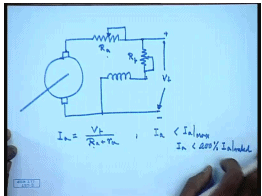 +
Rₐ
R_f
V_t
−
Iₐ = V_t / (Rₐ + rₐ) , Iₐ < Iₐ|max
Iₐ < 200% Iₐ|rated